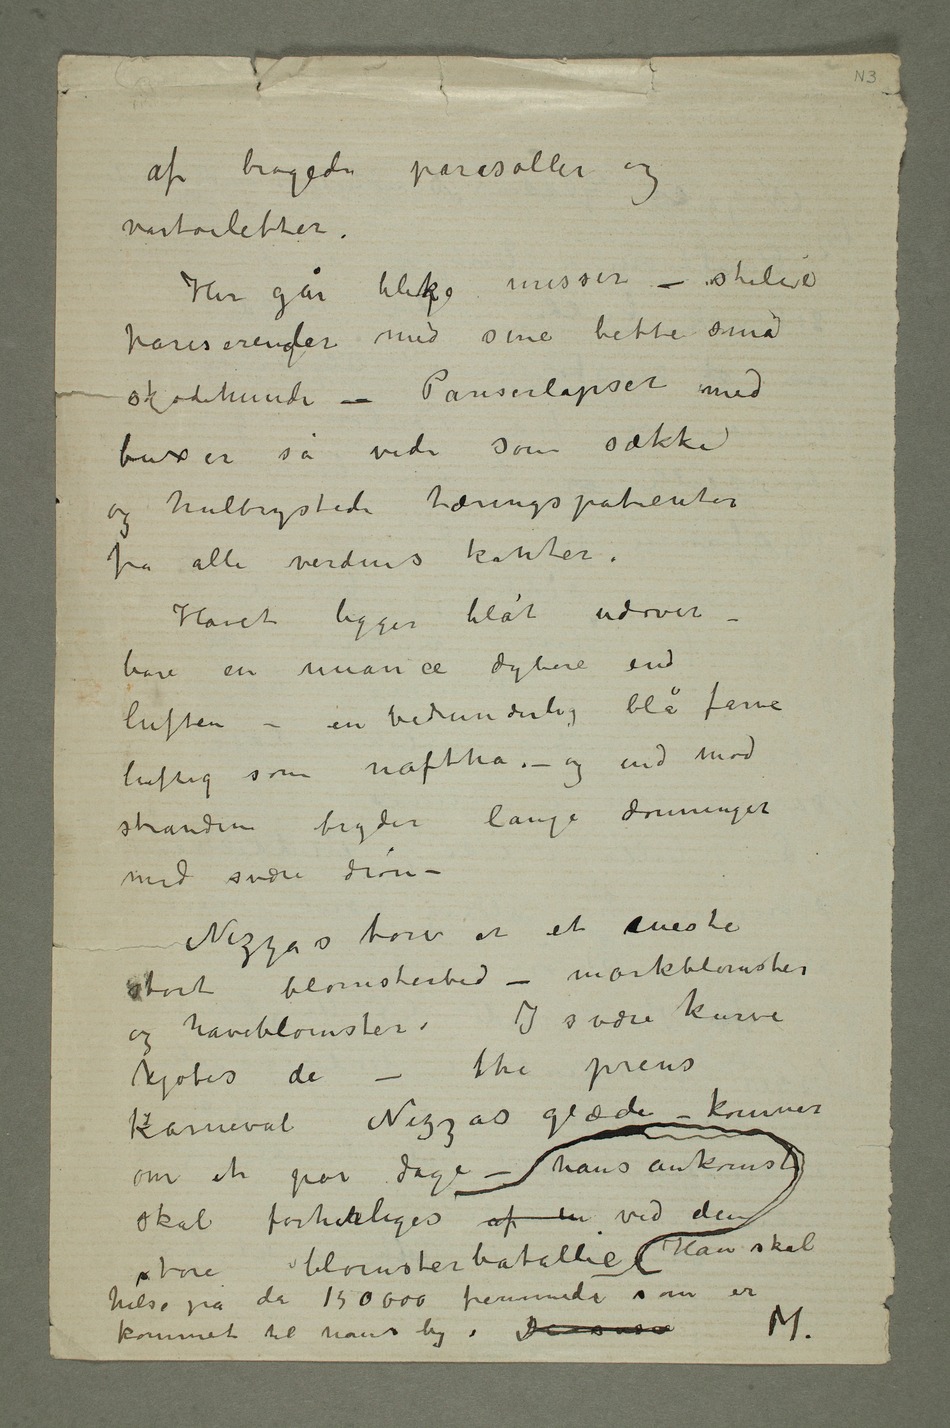 N3
af brogede parasoller og
vårtoiletter.
Her går blege misser – stilige
pariserender med sine bette små
skjødehunde – Pariserlapser med
buxer så vide som sække
og hulbrystede tæringspatienter
fra alle verdens kanter.
Havet ligger blåt udover –
bare en nuance dybere end
luften – en vidunderlig blå farve
luftig som naftha. – og ind mod
stranden bryder lange dønninger
med svære drøn –
Nizzas torv er et eneste
stort blomsterbed – markblomster
og haveblomster. I svære kurve
kjøbes de – thi prins
Karneval Nizzas glæde – kommer
om et par dage – hans ankomst
skal forherliges af en ved den
store blomsterbatallie Han skal
hilse på de 150000 fremmede som er
kommet til hans by. M.